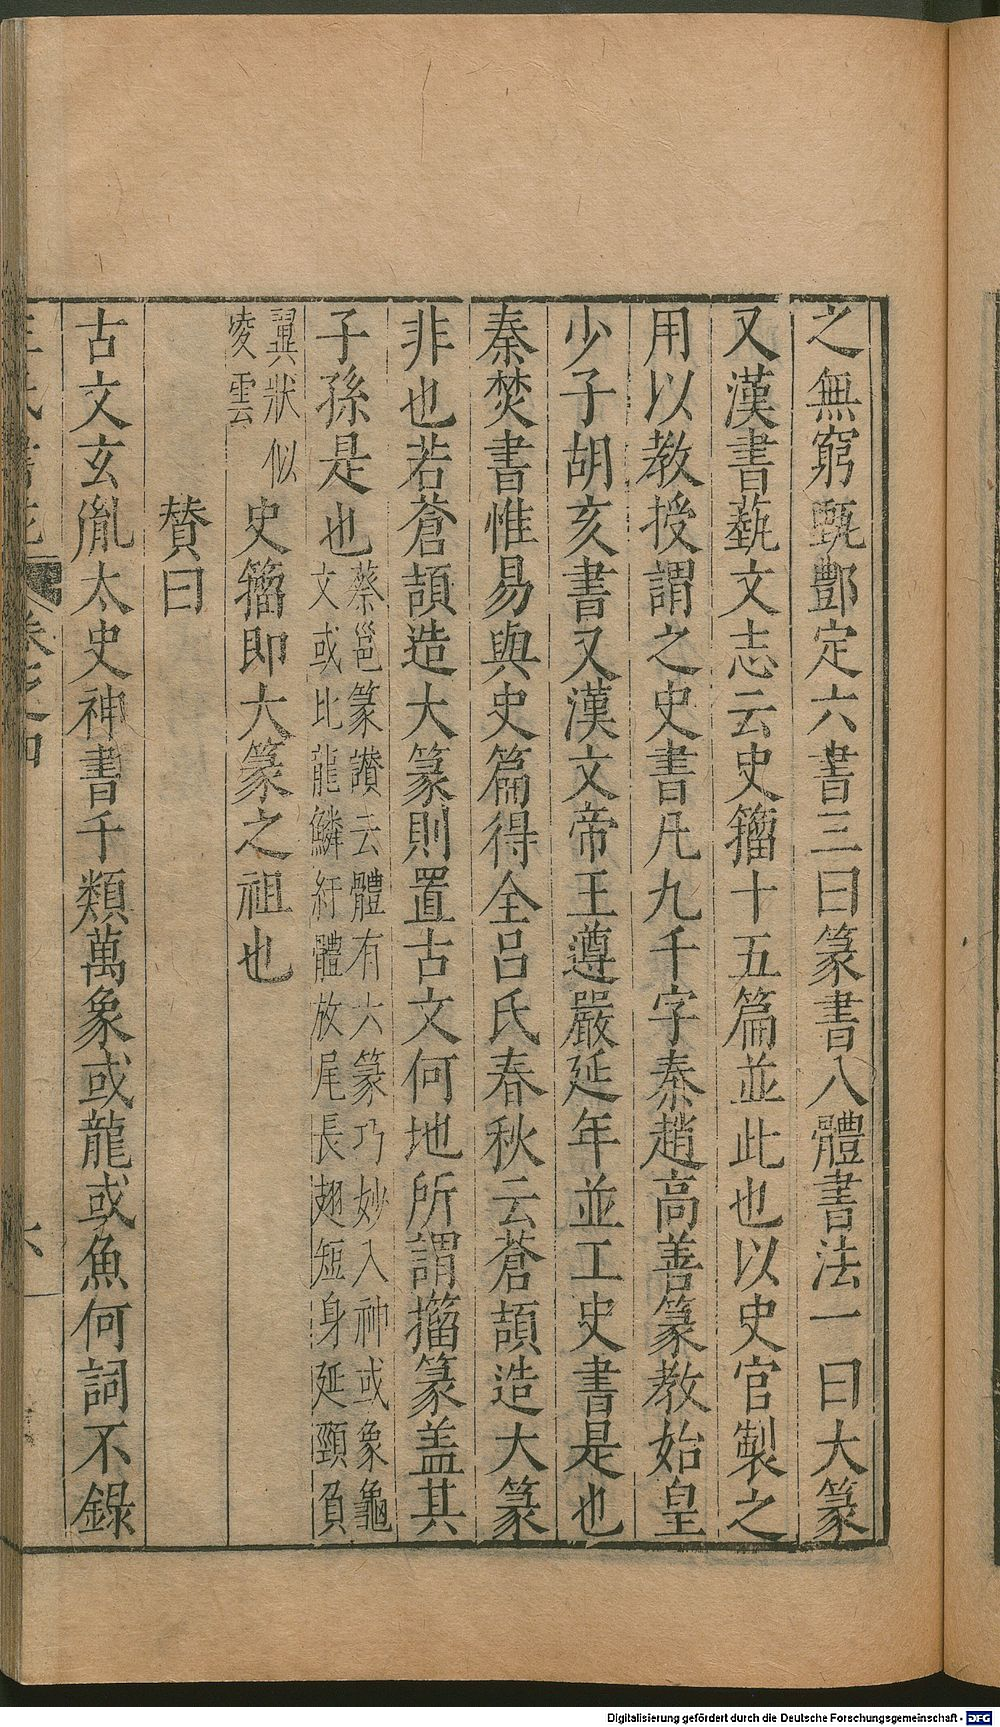 之無窮甄酆定六書三曰篆書八體書法一曰大篆
又漢書藝文志云史籀十五篇並此也以史官製之
用以教授謂之史書凡九千字秦趙高善篆教始皇
少子胡亥書又漢文帝王遵嚴延年並工史書是也
秦焚書惟易與史篇得全呂氏春秋云蒼頡造大篆
非也若蒼頡造大篆則置古文何地所謂籀篆盖其
子孫是也
蔡邕篆讃云體有六篆巧妙入神或象龜
文或比龍鱗紆體放尾長翅短身延頸負
翼狀似
凌雲
史籀即大篆之祖也
賛曰
古文玄胤太史神書千類萬象或龍或魚何詞不錄
卷之四
六
Digitalisierung gefördert durch die Deutsche Forschungsgemeinschaft - DFG